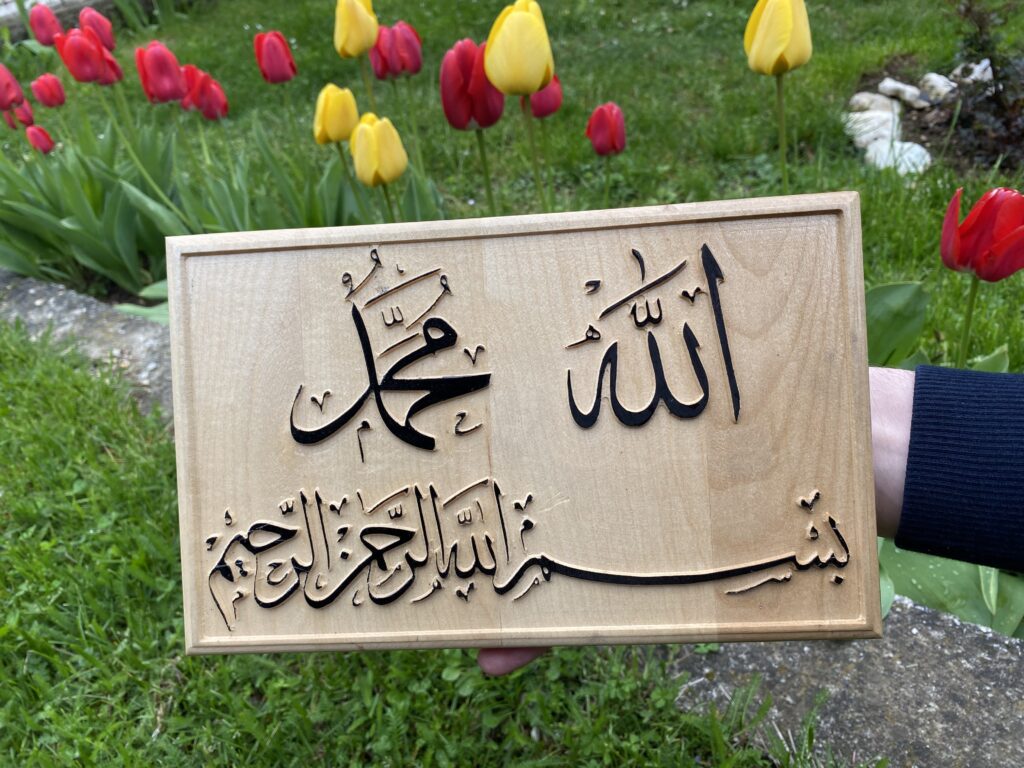 الله محمد
بسم الله الرحمن الرحيم